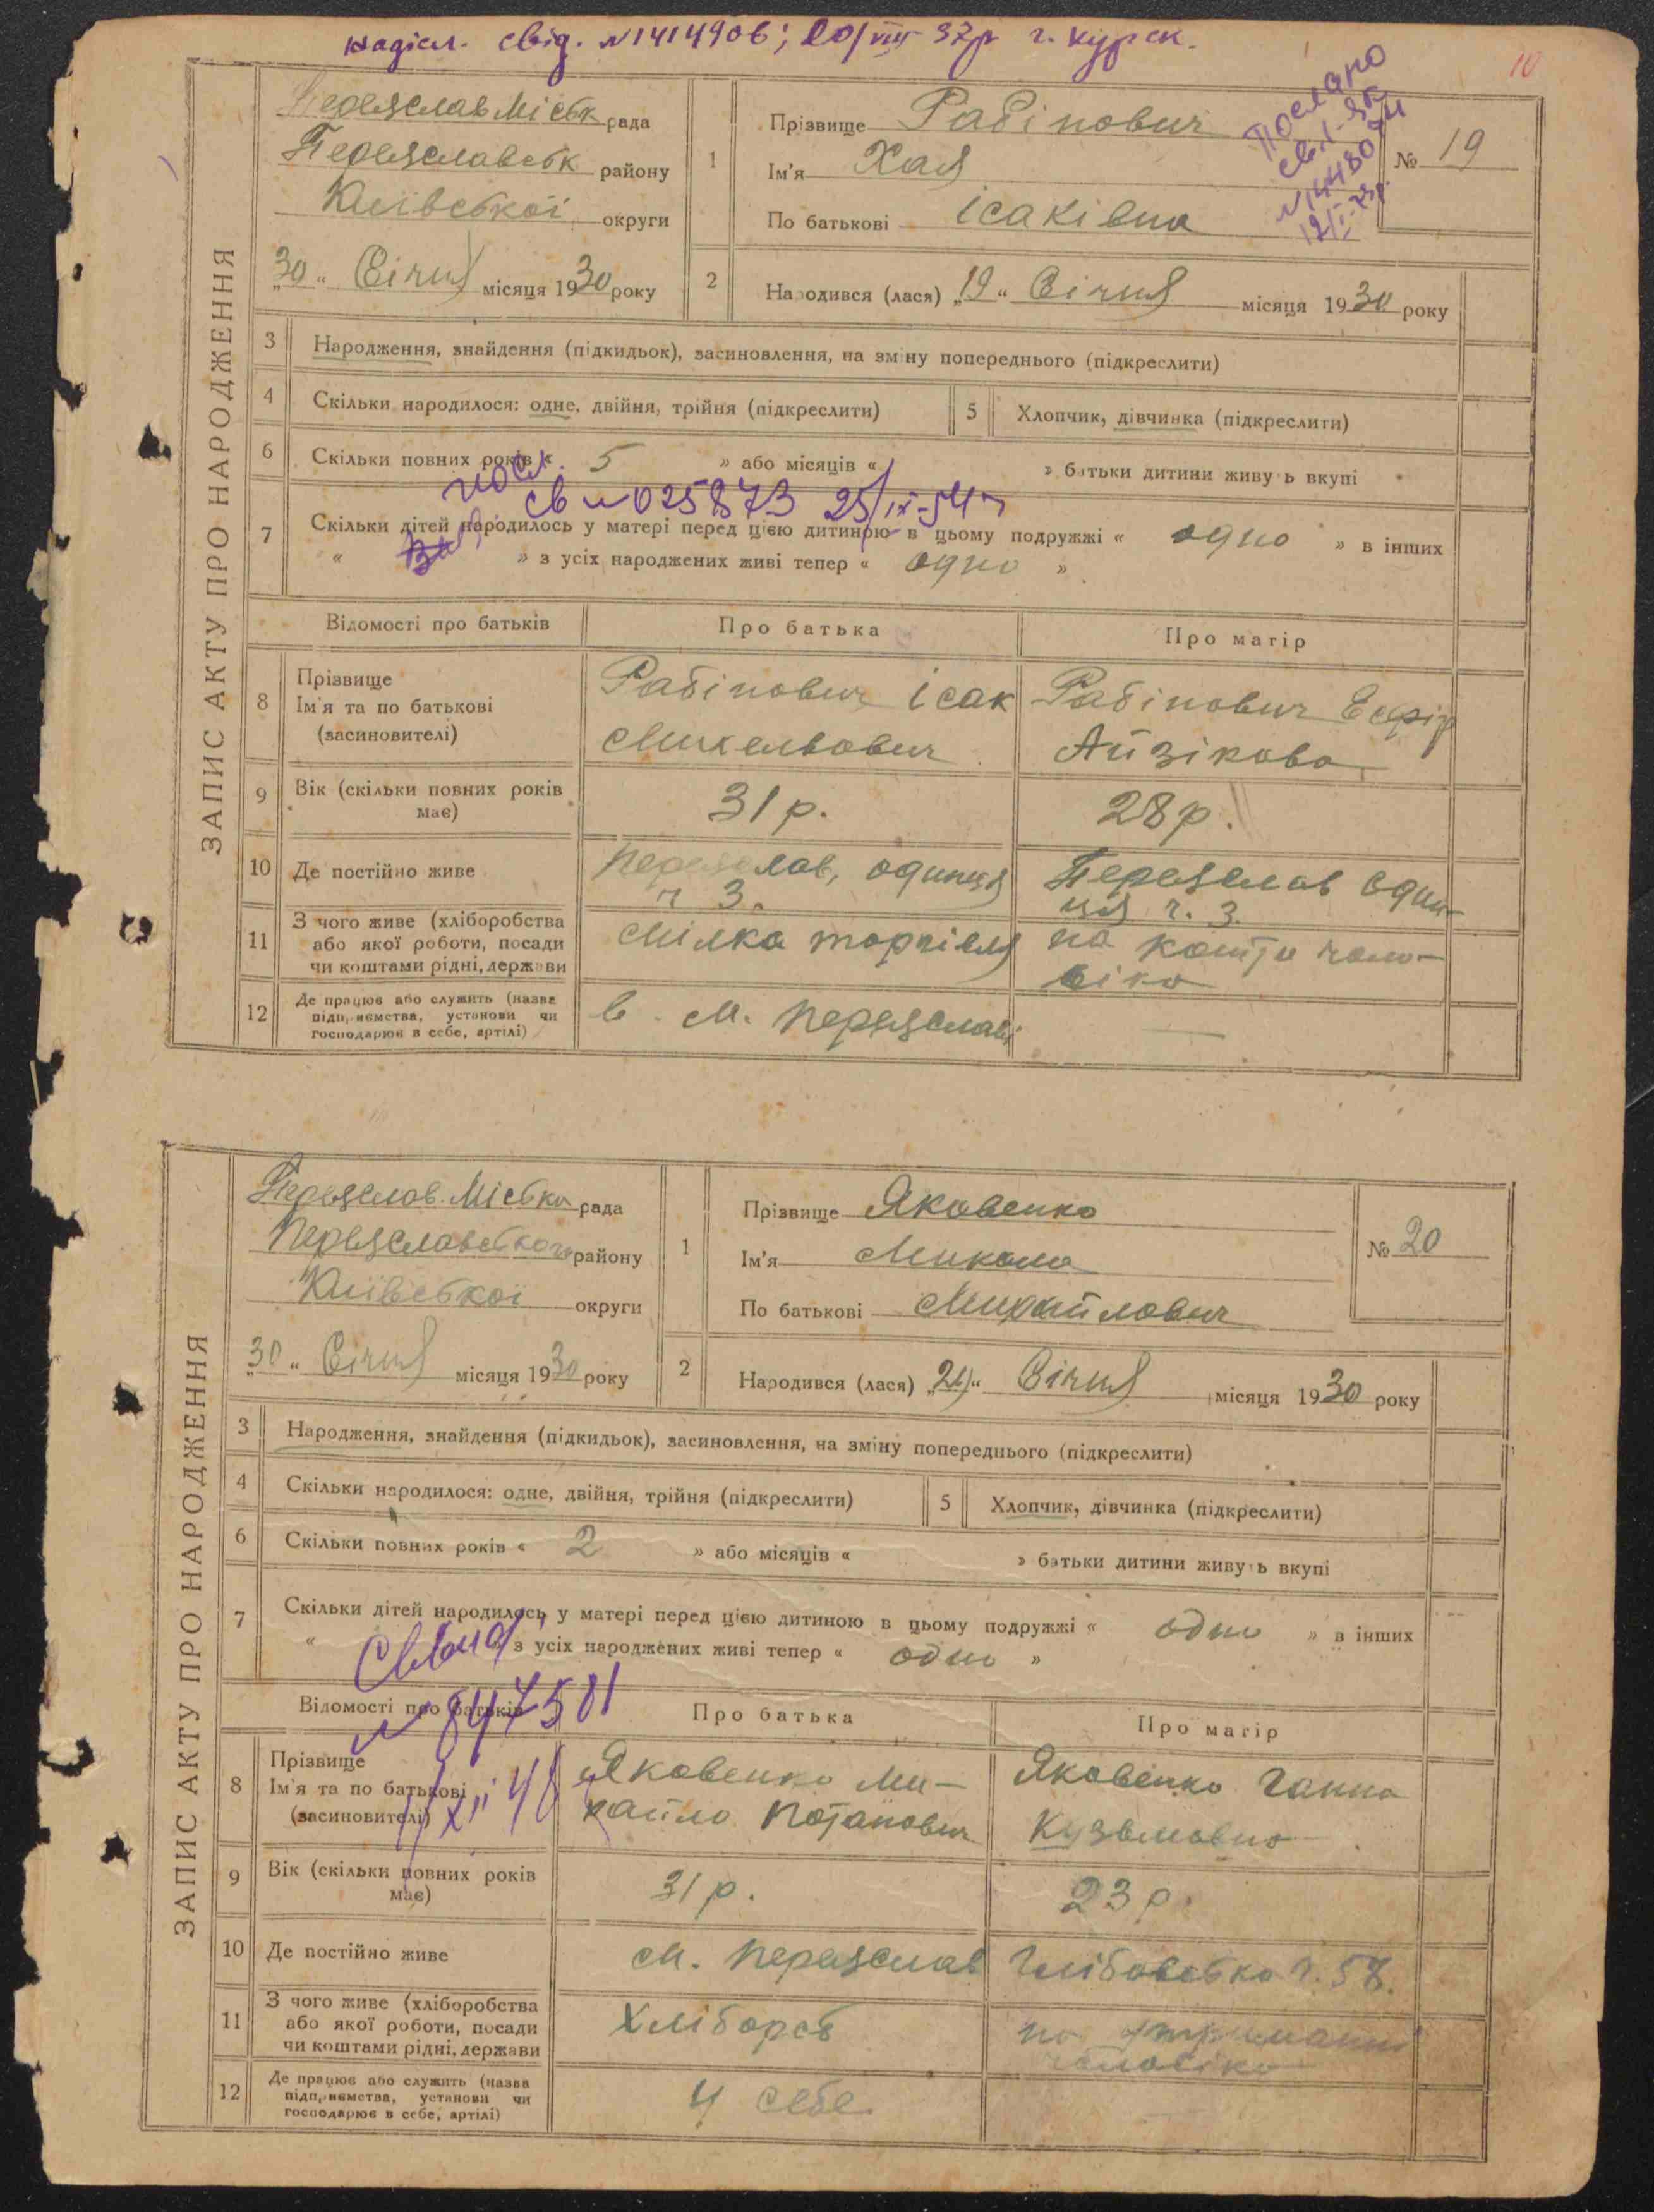 надісл. свід. №1414906; 20/VIII 37р г. Курск.
10
ЗАПИС АКТУ ПРО НАРОДЖЕННЯ
Переяслав Міськ рада
Переяславськ району
Київської округи
„30“ Січня місяця 1930 року
1
Прізвище Рабінович
Ім'я Хая
По батькові Ісаківна
Послано
№ 19
2
Народився (лася) „19“ Січня місяця 1930 року
3
Народження, знайдення (підкидьок), засиновлення, на зміну попереднього (підкреслити)
4
Скільки народилося: одне, двійня, трійня (підкреслити)
5
Хлопчик, дівчинка (підкреслити)
6
Скільки повних років « 5 » або місяців « » батьки дитини живуть вкупі
св №025873 25/IX-54 г
7
Скільки дітей народилось у матері перед цією дитиною в цьому подружжі « одно » в інших
« » з усіх народжених живі тепер « одно »
Відомості про батьків
Про батька
Про матір
8
Прізвище
Ім'я та по батькові
(засиновителі)
Рабінович Ісак
Михельвович
Рабінович Есфір
Айзікова
9
Вік (скільки повних років
має)
31 р.
28 р.
10
Де постійно живе
Переяслав, одиниця
ч 3.
Переяслав Един-
иця ч. 3.
11
З чого живе (хліборобства
або якої роботи, посади
чи коштами рідні, держави
Мілка торгівля
на кошти чоло-
віка
12
Де працює або служить (назва
підприємства, установи чи
господарює в себе, артілі)
в м. Переяславі
—
ЗАПИС АКТУ ПРО НАРОДЖЕННЯ
Переяслав. Міська рада
Переяславського району
Київської округи
„30“ Січня місяця 1930 року
1
Прізвище Яковенко
Ім'я Микола
По батькові Михайлович
№ 20
2
Народився (лася) Січня місяця 1930 року
3
Народження, знайдення (підкидьок), засиновлення, на зміну попереднього (підкреслити)
4
Скільки народилося: одне, двійня, трійня (підкреслити)
5
Хлопчик, дівчинка (підкреслити)
6
Скільки повних років « 2 » або місяців « » батьки дитини живуть вкупі
7
Скільки дітей народилось у матері перед цією дитиною в цьому подружжі « одно » в інших
« » з усіх народжених живі тепер « одно »
Відомості про батьків
Про батька
Про матір
№ 847581
8
Прізвище
Ім'я та по батькові
(засиновителі)
Яковенко Ми-
хайло Потапович
Яковенко Ганна
Кузьмовна
9
Вік (скільки повних років
має)
31 р.
23 р.
10
Де постійно живе
м. Переяслав
Глібовська ч. 57.
11
З чого живе (хліборобства
або якої роботи, посади
чи коштами рідні, держави
Хлібороб
на утриманні
чоловіка
12
Де працює або служить (назва
підприємства, установи чи
господарює в себе, артілі)
у себе